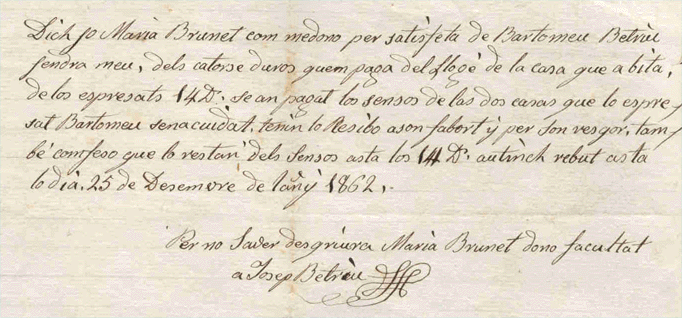 Dich jo Maria Brunet com medono per satisfeta de Bartomeu Betriu
jendra meu, dels catorse duros quem paga del llogé de la casa que abita,
de los espresats 14 D. se an pagat los sensos de las dos casas que lo espre-
sat Bartomeu senacuidat, tenin lo Resibo a son fabort y per son resgor, tam-
bé comfeso que lo restan dels sensos asta los 14 D. autinch rebut asta
lo dia, 25 de Desembre de lañy 1862,.
Per no Saver desgriurer Maria Brunet dono facultat
a Josep Betriu